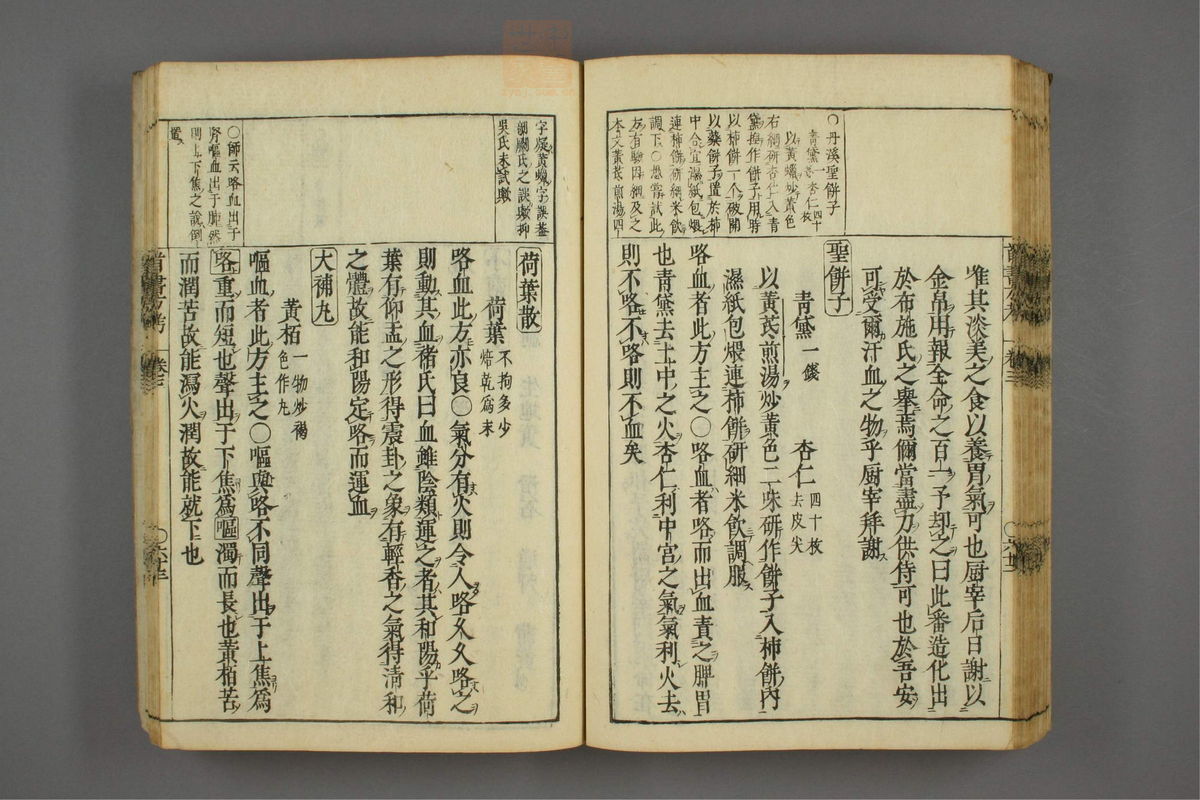 〇丹溪聖餅子
青黛一錢杏仁四十枚
以黃蠟炒黃色
右細研杏仁入青
黛揑作餅子用時
以柿餅一个破開
以藥餅子置於柿
中合定濕紙包煨
連柿餅研細米飲
調下〇愚嘗試此
方有驗因細及之
本文黃芪煎湯四
唯其淡美之食以養胃氣可也厨宰后日謝以
金帛出報全命之百一予却之曰此番造化出
於布施氏之舉焉爾當盡力供侍可也於吾安
可受爾汗血之物乎厨宰拜謝
聖餅子
青黛一錢 杏仁四十枚去皮尖
以黃芪煎湯炒黃色二味研作餅子入柿餅內
濕紙包煨連柿餅研細米飲調服
咯血者此方主之〇咯血者咯而出血責之脾胃
也青黛去土中之火杏仁利中宮之氣氣利火去
則不咯不咯則不血矣
六廿二
字疑黃蠟字誤蓋
細關氏之誤歟抑
吳氏未試歟
〇師云咯血出于
腎嘔血出于脾然
則上下焦之說倒
置
荷葉散
荷葉不拘多少焙乾爲末
咯血此方亦良〇氣分有火則令人咯久久咯之
則動其血褚氏曰血雖陰類運之者其和陽乎荷
葉有仰盂之形得震卦之象有輕香之氣得淸和
之體故能和陽定咯而運血
大補丸
黃栢一物炒褐色作丸
嘔血者此方主之〇嘔與咯不同聲出于上焦爲
咯重而短也聲出于下焦爲嘔濁而長也黃栢苦
而潤苦故能瀉火潤故能就下也
首書方考 卷三
六廿三